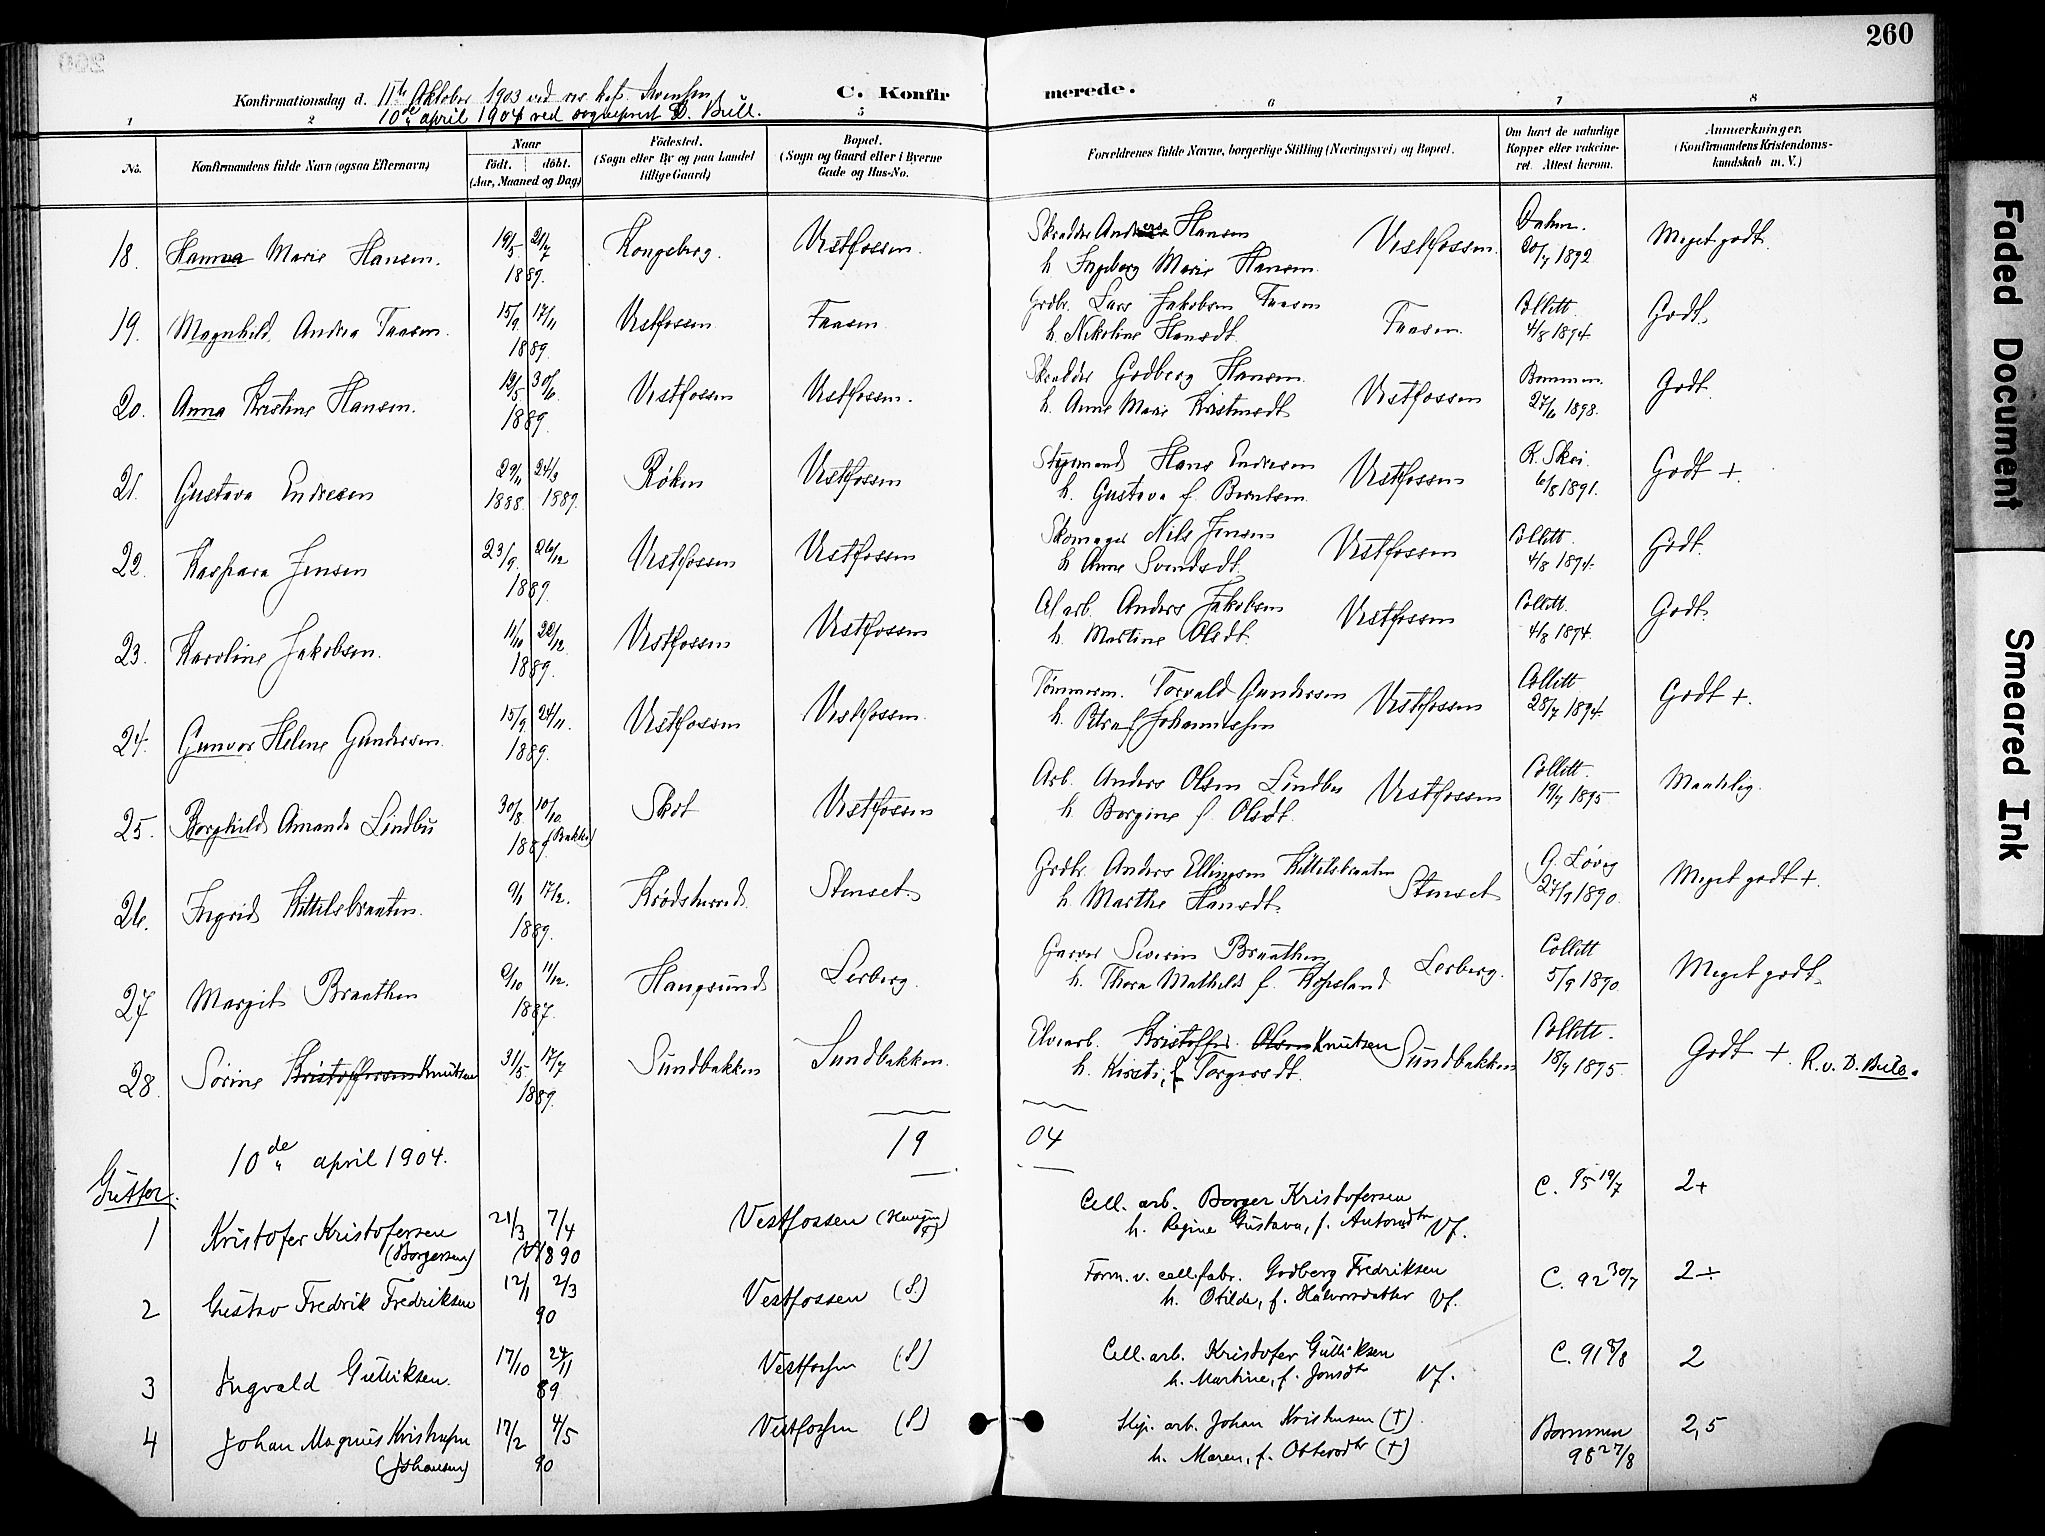 260
Konfirmationsdag d. 11te Oktober 1903 ved res. kap. Svensen
10de april 1904 ved sogneprest D. Bull.
C. Konfirmerede.
1 2 5 6 7 8
No. Konfirmandens fulde Navn (ogsaa Efternavn) Naar født. døbt. (Aar, Maaned og Dag) Fødested. (Sogn eller By og paa Landet tillige Gaard) Bopæl. (Sogn og Gaard eller i Byerne Gade og Hus-No. Forældrenes fulde Navne, borgerlige Stilling (Næringsvei) og Bopæl. Om havt de naturlige Kopper eller vaccineret. Attest herom. Anmærkninger. (Konfirmandens Kristendomskundskab m. V.)
18. Hanna Marie Hansen. 19/5 21/7 1889. Kongsberg. Vestfossen. Skrædder Anders Hansen Vestfossen. 20/7 1892 Meget godt.
h. Ingeborg Marie Hansen.
19. Magnhild Andrea Faasen. 15/9 17/11 1889. Vestfossen Faasen. Grdbr. Lars Jakobsen Faasen Faasen. Collett 4/8 1894. Godt.
h. Nikoline Hansdt.
20. Anna Kristine Hansen. 12/5 30/6 1889. Vestfossen Vestfossen. Skrædder Godberg Hansen Vestfossen Bommen. 27/6 1898. Godt.
h. Anne Marie Kristensdt
21. Gustava Endresen 29/11 1888. 24/3 1889. Røken Vestfossen Styrmand Hans Endresen Vestfossen R. Skei. 6/8 1891. Godt +.
h. Gustava f. Berntsen
22. Kaspara Jensen 23/9 26/12 1889. Vestfossen Vestfossen Skomager Nils Jensen Vestfossen Collett. 4/8 1894. Godt.
h. Anne Svendsdt.
23. Karoline Jakobsen. 11/10 22/12 1889. Vestfossen Vestfossen Cl. arb. Anders Jakobsen Vestfossen Collett. 4/8 1894. Godt.
h. Martine Olsdt.
24. Gunvor Helene Gundersen. 15/9 24/11. 1889. Vestfossen Vestfossen. Tømmerm. Torvald Gundersen Vestfossen Collett 28/7 1894. Godt +.
h. Petra f Johannessen
25. Borghild Amanda Lindbu 30/8 10/10 188 (Bakke) Skot Vestfossen Arb. Anders Olsen Lindbu Vestfossen Collett. 19/7 1895 Maadelig.
h. Borgine f. Olsdt.
26. Ingrid Kittilsbraaten. 9/1 17/2. 1889. Krødsherred. Stenset Grdbr. Anders Ellingsen Kittilsbraaten Stenset G. Løvig 27/9 1890. Meget godt +.
h. Marthe Hansdt.
27 Margit Braathen 9/10 11/12. 1887. Haugsund Lerberg. Garver Severin Braathen Lerberg. Collett 5/9 1890. Meget godt.
h. Thora Mathilde f. Kopsland
28. Sørine Kristoffersen Knutsen 31/5 17/7 1889. Sundbakken Sundbakken. Elvearb. Kristoffer Olsen Knutsen Sundbakken Collett. 18/7 1895. Godt +. R. v. D. Bull.
h. Kirsti, f Torgersdt.
1904
10de april 1904.
Gutter.
1 Kristofer Kristofersen 21/3 7/4 Vestfossen Cell. arb. Borger Kristofersen C. 95 19/7 2+
(Borgersen) 1890 h. Regine Gustava, f. Antonsdtr Vf.
2 Gustav Fredrik Fredriksen 12/1 2/3 90 Vestfossen (S.) Form. v. cell.fabr. Godberg Fredriksen C. 92 30/7 2÷
h. Otilde, f. Halvorsdatter Vf.
3 Ingvald Gulliksen. 17/10 24/11 89 Vestfossen (S) Cell. arb. Kristofer Gulliksen C. 91 8/8 2
h. Martine, f. Jonsdtr Vf.
4 Johan Magnus Kristensen 17/2 4/5 Vestfossen (S) arb. Johan Kristensen (†). Bommen 2,5
(Johansen) 90 h. Maren, f. (†) 98 27/8
Faded Document
Smeared Ink